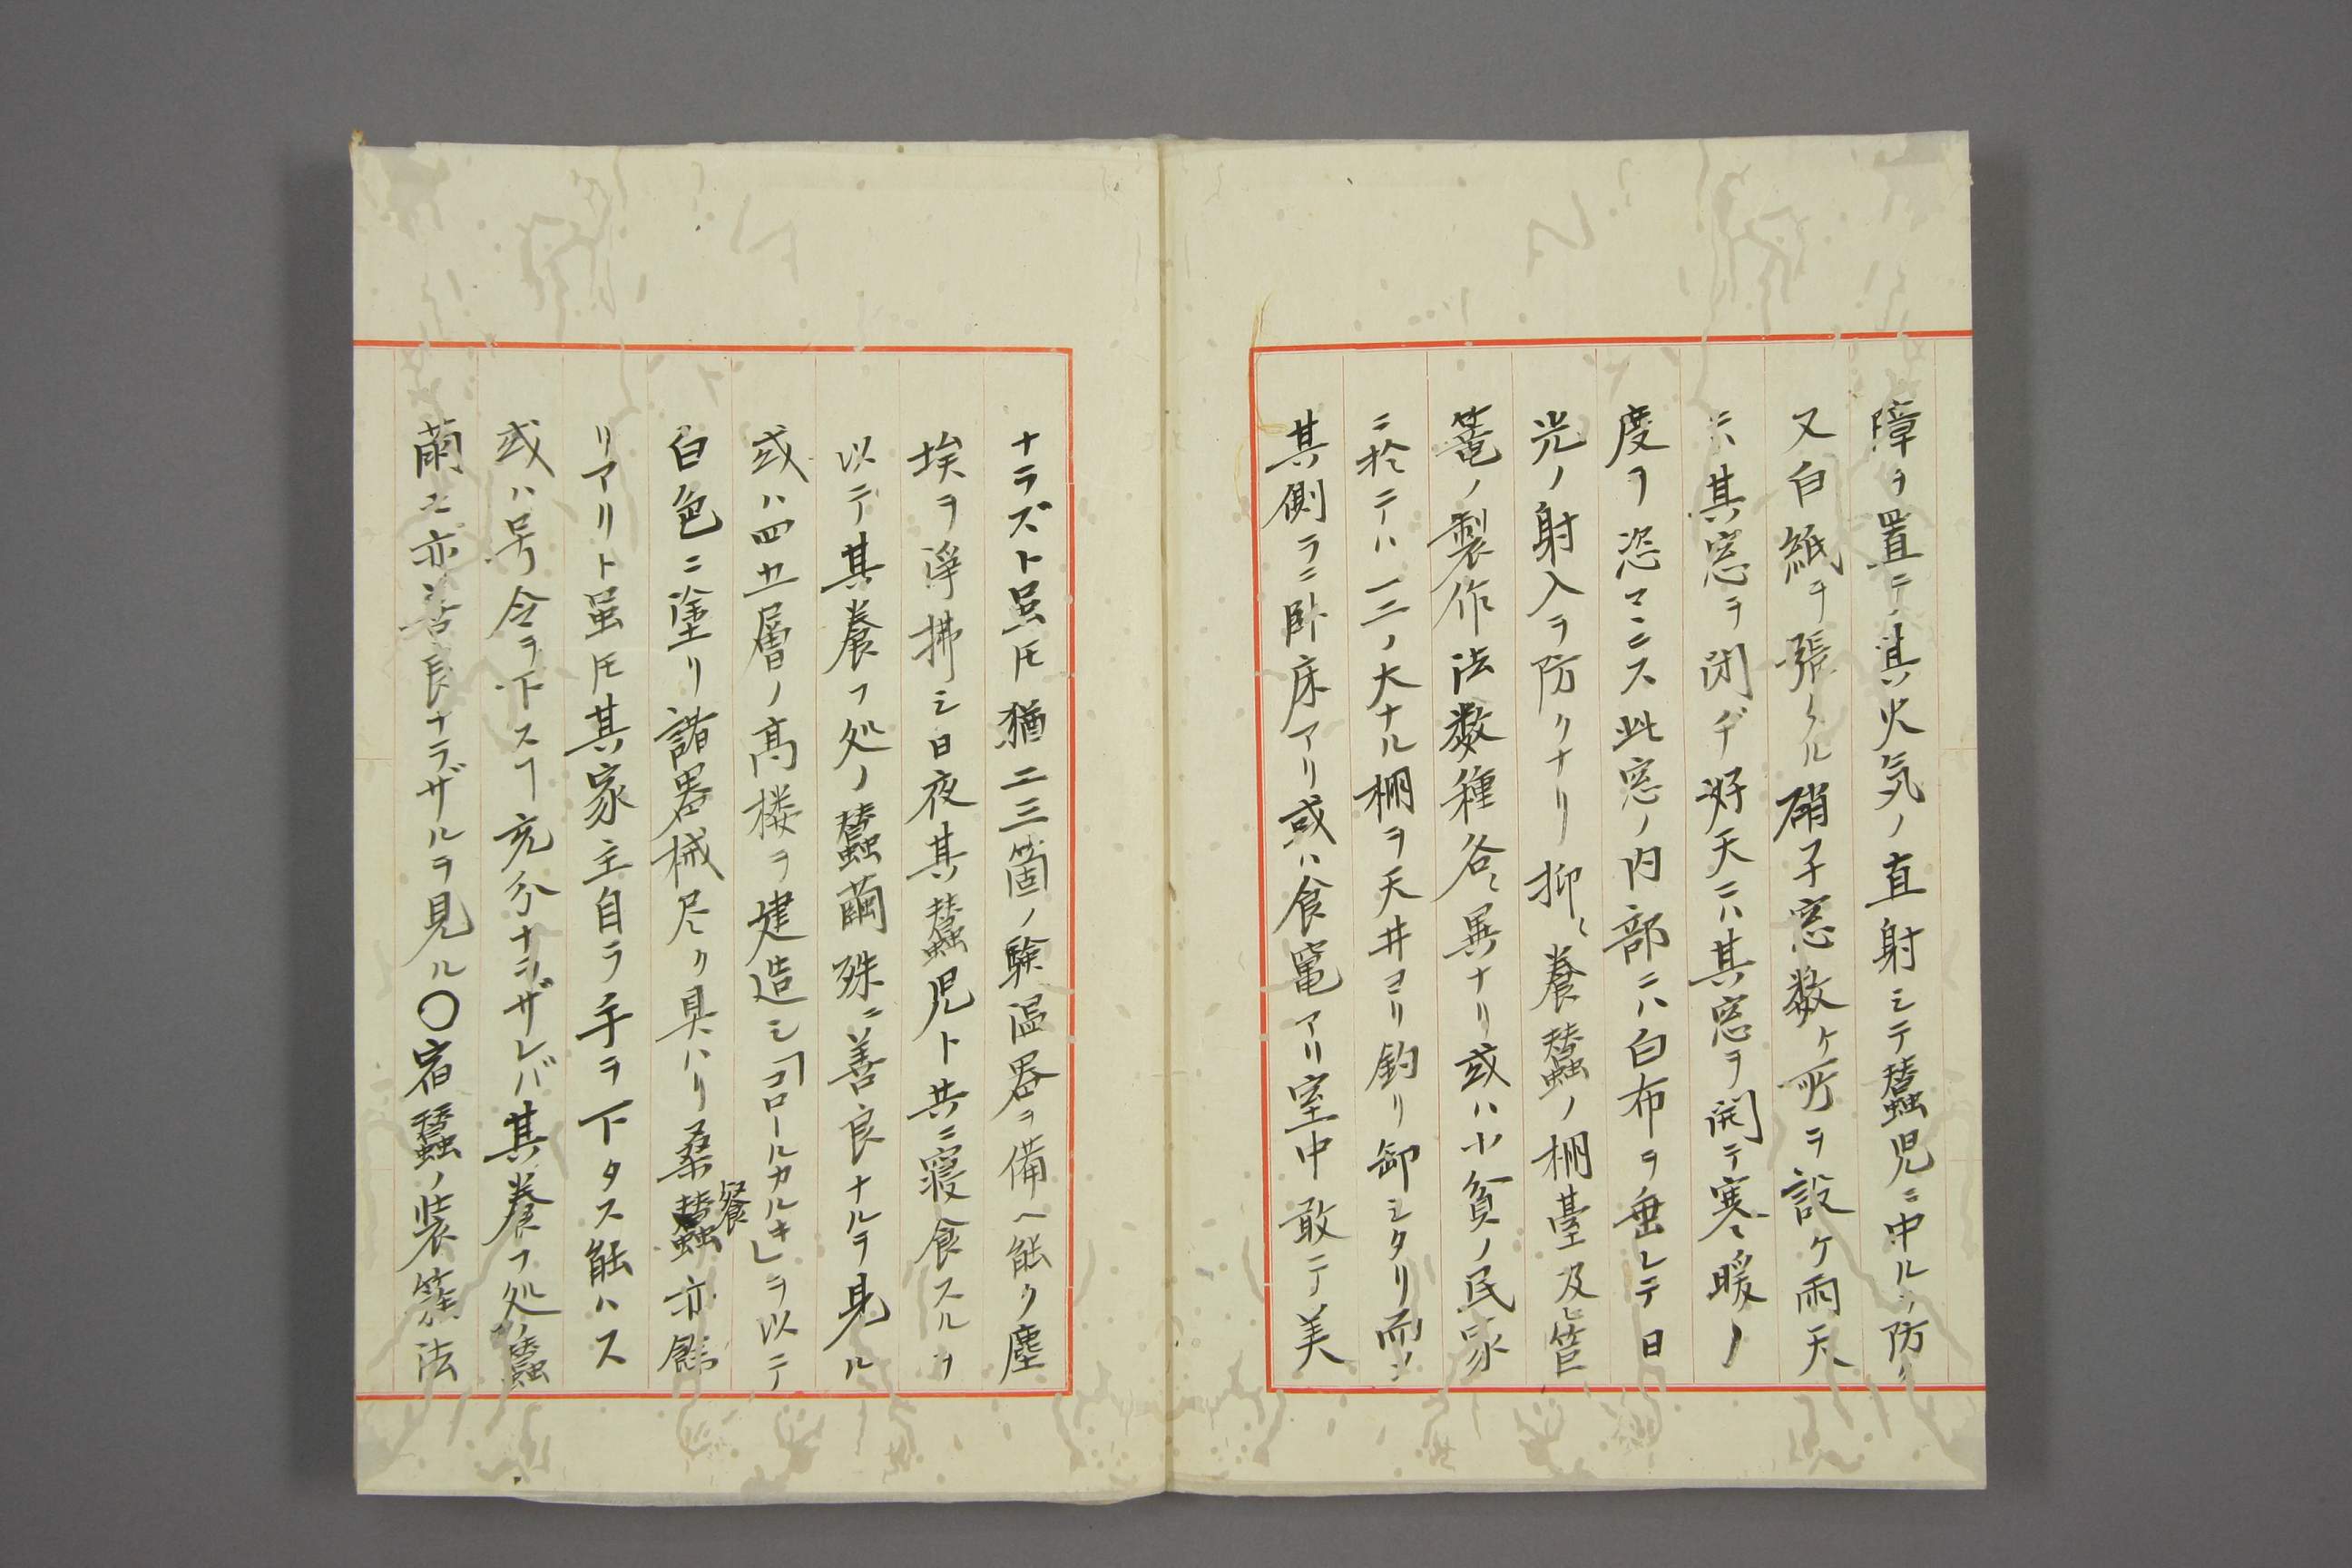 障ヲ置テ其火気ノ直射シテ蠶児ニ中ルヲ防ク
又白紙ヲ張タル硝子窓数ヶ所ヲ設ケ雨天
ニハ其窓ヲ閉ヂ好天ニハ其窓ヲ開テ寒暖ノ
度ヲ恣マニス此窓ノ内部ニハ白布ヲ垂レテ日
光ノ射入ヲ防クナリ抑〻養蠶ノ棚臺及ヒ筐
篭ノ製作法数種各〻異ナリ或ハ小貧ノ民家
ニ於テハ一二ノ大ナル棚ヲ天井ヨリ釣リ卸シタリ而シ
其側ラニ卧床アリ或ハ食竃アリ室中敢テ美
ナラズト虽𪜈猶二三箇ノ験温器ヲ備ヘ能ク塵
埃ヲ浄拂シ日夜其蠶児ト共ニ寝食スルヲ
以テ其養フ処ノ蠶繭殊ニ善良ナルヲ見ル
或ハ四五層ノ高楼ヲ建造シ「コロールカルキ」ヲ以テ
白色ニ塗リ諸器械尽ク具ハリ桑蠶餐亦餘
リアリト虽𪜈其家主自ラ手ヲ下タス能ハス
或ハ号令ヲ下スヿ充分ナラザレバ其養フ処ノ蠶
繭モ亦善良ナラザルヲ見ル〇宿蠶ノ装簇法